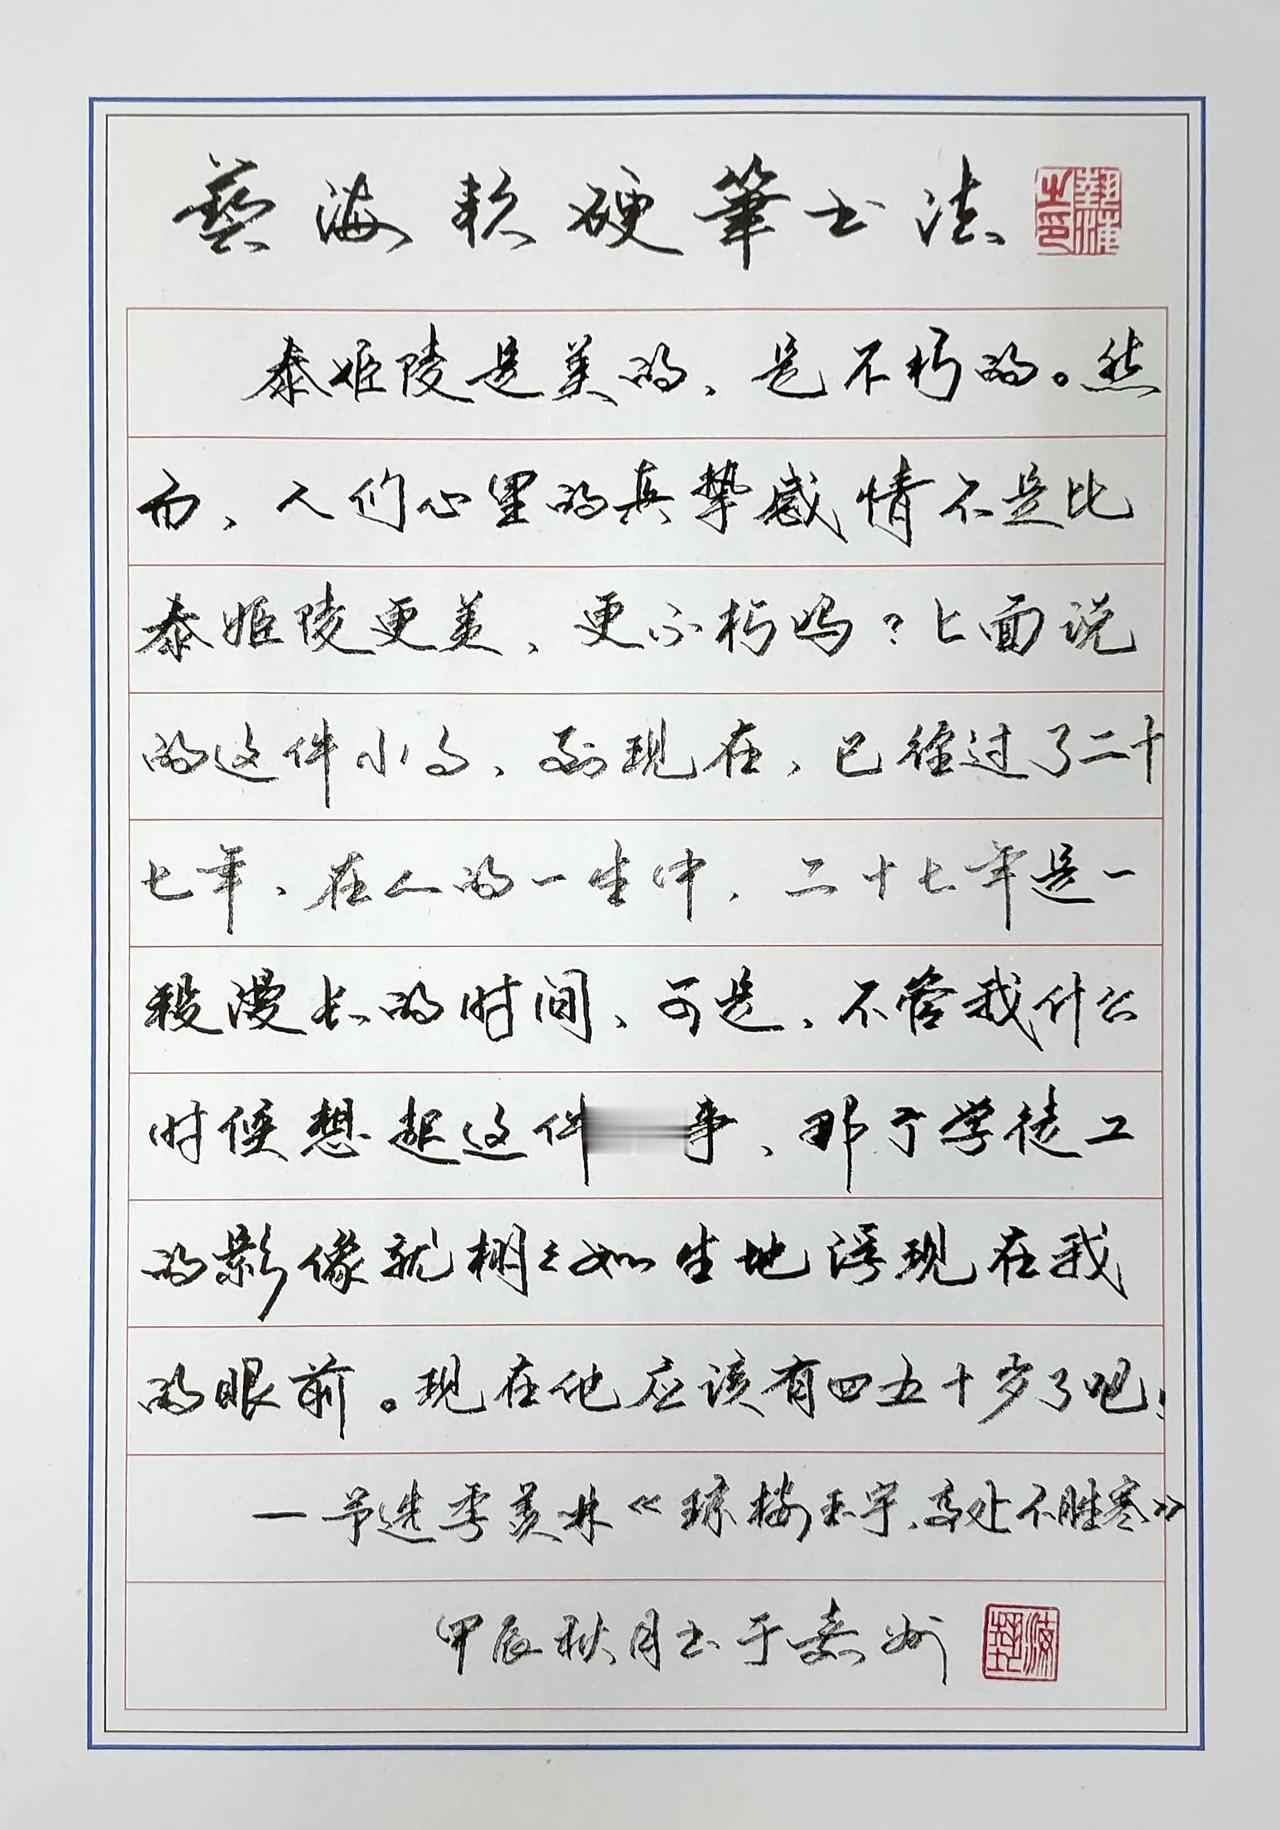 藝海软硬筆书法
藝海之印
泰姬陵是美的，是不朽的。然
而，人们心里的真挚感情不是比
泰姬陵更美，更不朽吗？上面说
的这件小事，到现在，已经过了二十
七年，在人的一生中，二十七年是一
段漫长的时间，可是，不管我什么
时候想起这件事，那个学徒工
的影像就栩々如生地浮现在我
的眼前。现在他应该有四五十岁了吧！
—节选季羡林《琼楼玉宇，高处不胜寒》
甲辰秋月书于嘉州
藝海